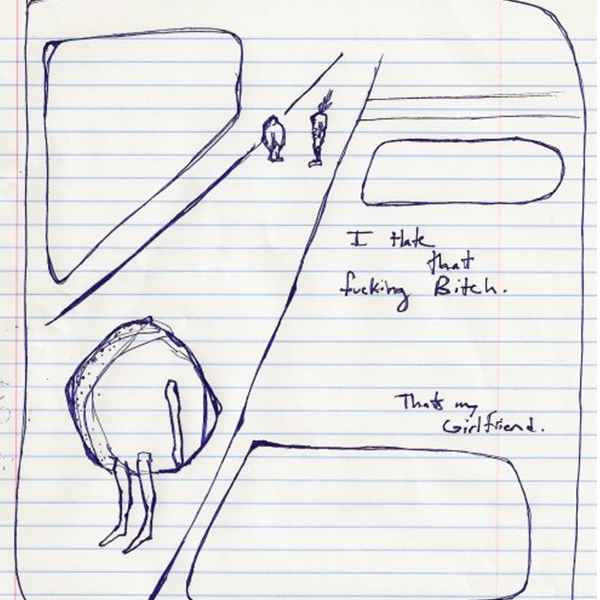 I Hate
that
fucking Bitch.
Thats my
Girlfriend.